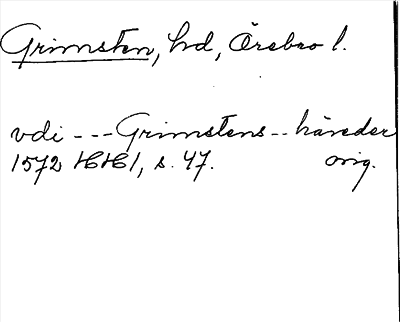 Grimsten, hd, Örebro l.
vdi --- Grimstens -- häreder
1572 HH1, s. 47. orig.